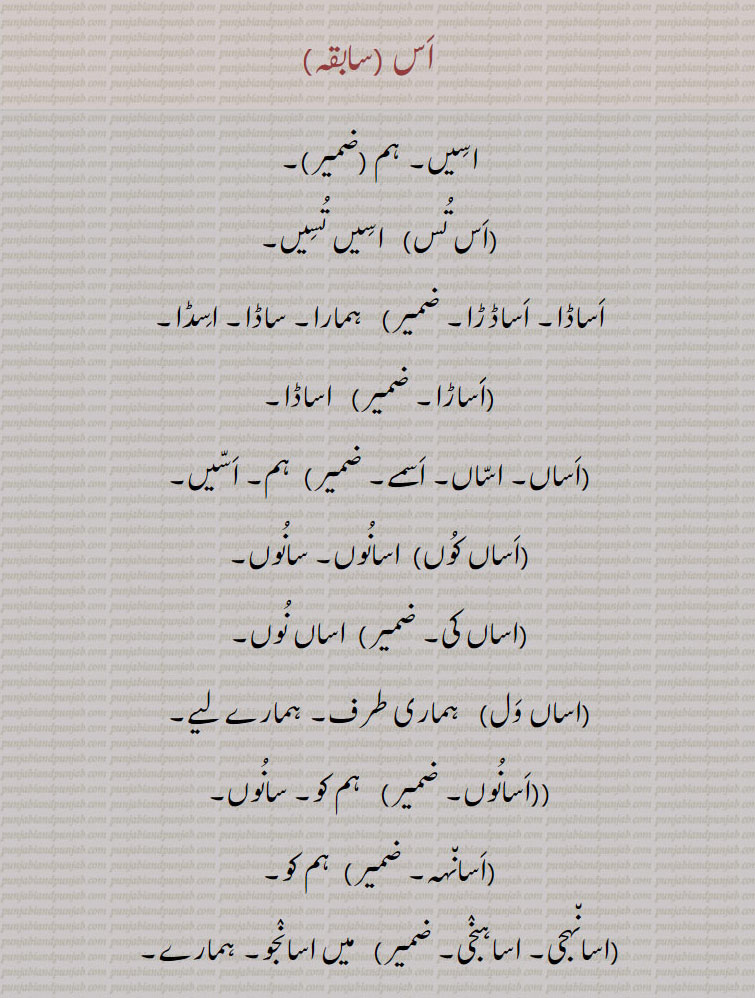 اَس (سابقہ)
اسِیں۔ ہم (ضمیر)۔
(اَس تُس) اسِیں تُسِیں۔
اَساڈا۔ اَساڈڑا۔ ضمیر) ہمارا۔ ساڈا۔ اسِڈا۔
(اَساڑا۔ ضمیر) اساڈا۔
(اَساں۔ اسّاں۔ اَسمے۔ ضمیر) ہم۔ اَسّیں۔
(اَساں کُوں) اسانُوں۔ سانُوں۔
(اساں کی۔ ضمیر) اساں نُوں۔
(اساں وَل) ہماری طرف۔ ہمارے لیے۔
((اَسانُوں۔ ضمیر) ہم کو۔ سانُوں۔
(اَسانّہہ۔ ضمیر) ہم کو۔
(اسانّہجی۔ اساہنْجی۔ ضمیر) میں اسانْجو۔ ہمارے۔